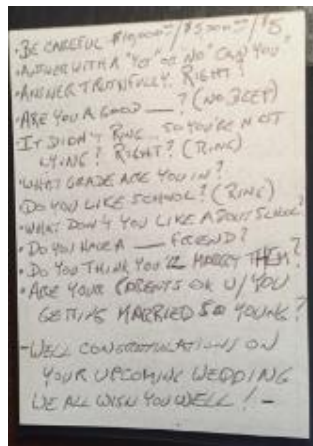 • BE CAREFUL $10,000⁰⁰/$5,000⁰⁰/$5
• ANSWER WITH A "YES" OR "NO" CAN YOU?
• ANSWER TRUTHFULLY. RIGHT?
• ARE YOU A GOOD ___? (NO BEEP)
• IT DIDN'T RING, SO YOU'RE NOT
LYING? RIGHT? (RING)
• WHAT GRADE ARE YOU IN?
• DO YOU LIKE SCHOOL? (RING)
• WHAT DON'T YOU LIKE ABOUT SCHOOL?
• DO YOU HAVE A ___ FRIEND?
• DO YOU THINK YOU'LL MARRY THEM?
• ARE YOUR PARENTS OK W/ YOU
GETTING MARRIED SO YOUNG?
- WELL CONGRATULATIONS ON
YOUR UPCOMING WEDDING
WE ALL WISH YOU WELL! -